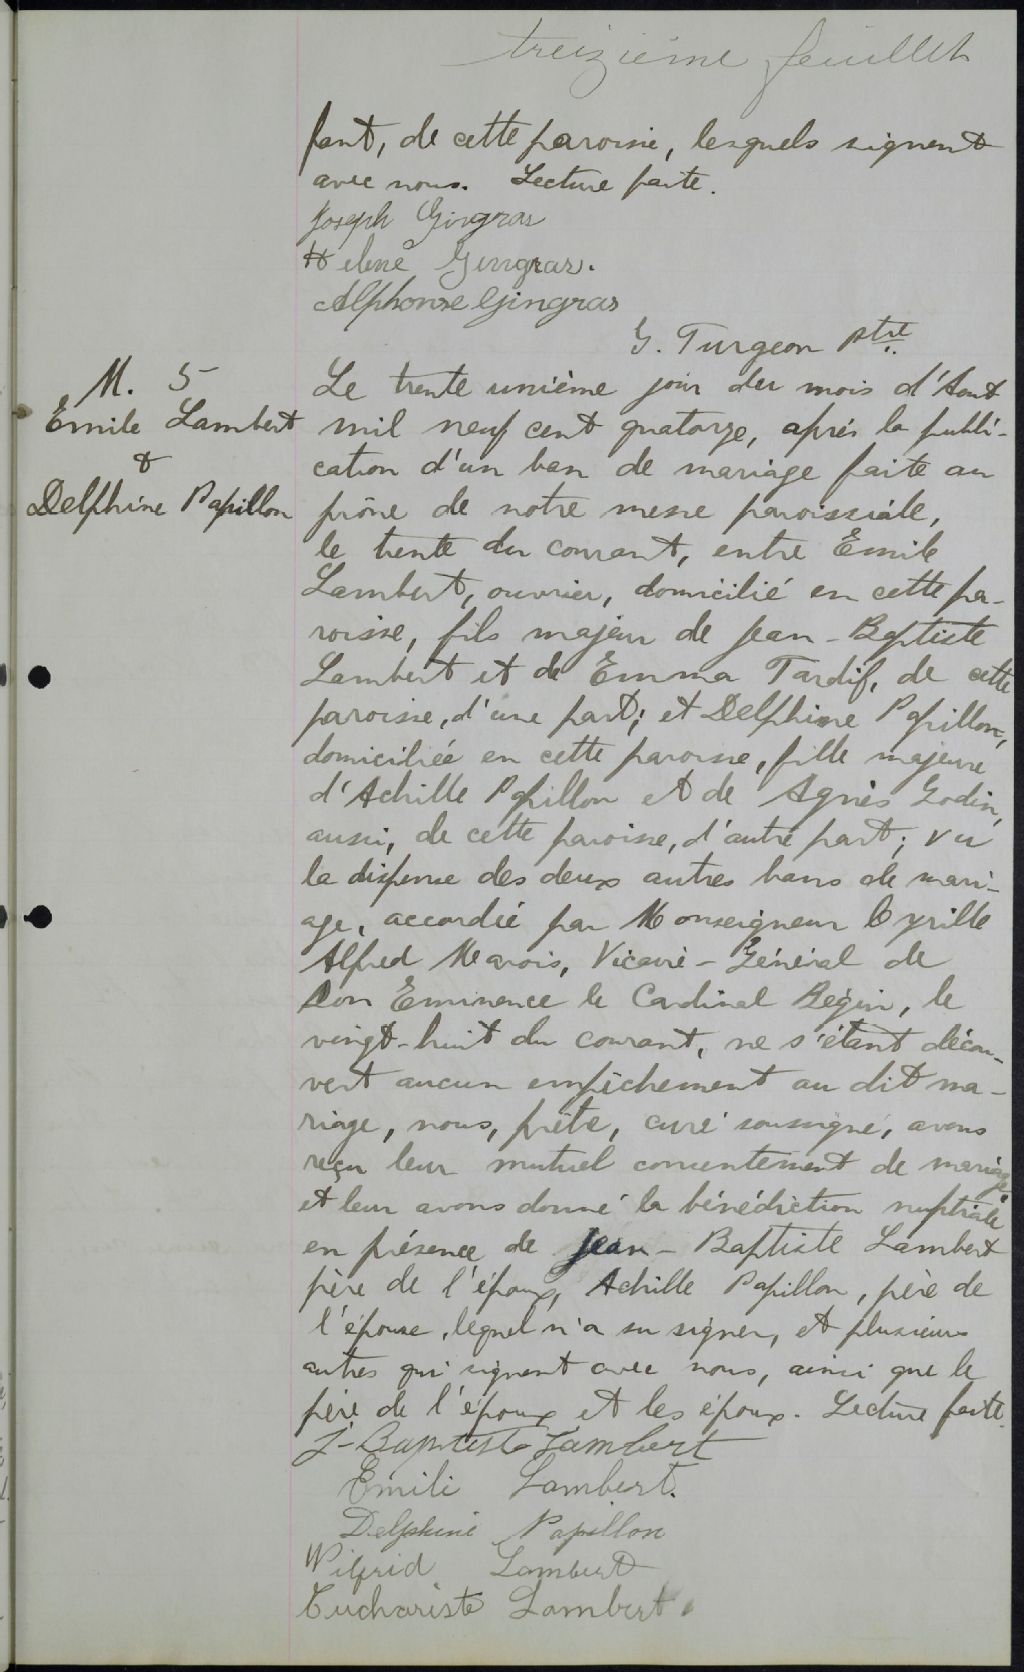 treizième feuillet
fant, de cette paroisse, lesquels signent
avec nous. Lecture faite.
Joseph Gingras
Hélène Gingras.
Alphonse Gingras
G. Turgeon Ptre
M. 5
Emile Lambert
&
Delphine Papillon
Le trente unième jour du mois d'Aout
mil neuf cent quatorze, après la publi-
cation d'un ban de mariage faite au
prône de notre messe paroissiale,
le trente du courant, entre Emile
Lambert, ouvrier, domicilié en cette pa-
roisse, fils majeur de Jean-Baptiste
Lambert et de Emma Tardif, de cette
paroisse, d'une part; et Delphine Papillon,
domiciliée en cette paroisse, fille majeure
d'Achille Papillon et de Agnès Godin,
aussi, de cette paroisse, d'autre part; vu
la dispense des deux autres bans de mari-
age, accordée par Monseigneur Cyrille
Alfred Marois, Vicaire-Général de
Son Eminence le Cardinal Bégin, le
vingt-huit du courant, ne s'étant décou-
vert aucun empêchement au dit ma-
riage, nous, prêtre, curé soussigné, avons
reçu leur mutuel consentement de mariage
et leur avons donné la bénédiction nuptiale
en présence de Jean-Baptiste Lambert
père de l'époux, Achille Papillon, père de
l'épouse, lequel n'a su signer, et plusieurs
autres qui signent avec nous, ainsi que le
père de l'époux et les époux. Lecture faite.
J-Baptiste Lambert
Emile Lambert.
Delphine Papillon
Wilfrid Lambert
Euchariste Lambert.